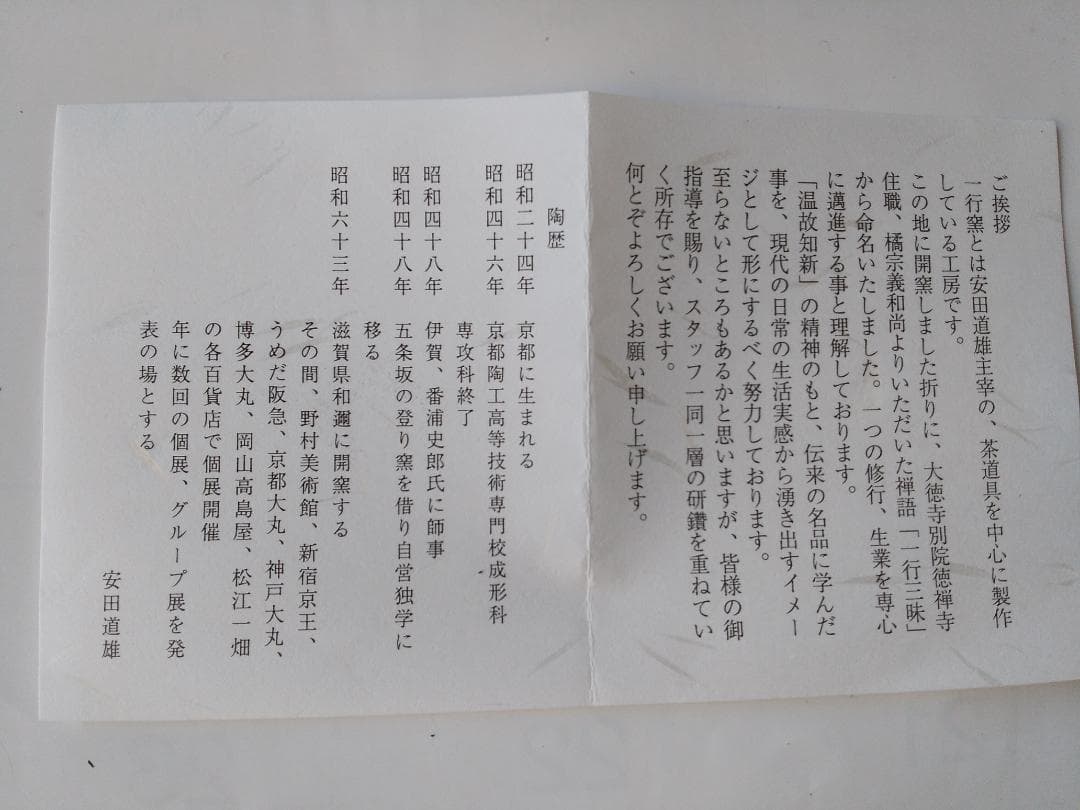 ご挨拶
一行窯とは安田道雄主宰の、茶道具を中心に製作
している工房です。
この地に開窯しました折りに、大徳寺別院徳禅寺
住職、橘宗義和尚よりいただいた禅語「一行三昧」
から命名いたしました。一つの修行、生業を専心
に邁進する事と理解しております。
「温故知新」の精神のもと、伝来の名品に学んだ
事を、現代の日常の生活実感から湧き出すイメー
ジとして形にするべく努力しております。
至らないところもあるかと思いますが、皆様の御
指導を賜り、スタッフ一同一層の研鑽を重ねてい
く所存でございます。
何とぞよろしくお願い申し上げます。
陶歴
昭和二十四年 京都に生まれる
昭和四十六年 京都陶工高等技術専門校成形科
専攻科終了
昭和四十八年 伊賀、番浦史郎氏に師事
昭和四十八年 五条坂の登り窯を借り自営独学に
移る
昭和六十三年 滋賀県和邇に開窯する
その間、野村美術館、新宿京王、
うめだ阪急、京都大丸、神戸大丸、
博多大丸、岡山高島屋、松江一畑
の各百貨店で個展開催
年に数回の個展、グループ展を発
表の場とする
安田道雄